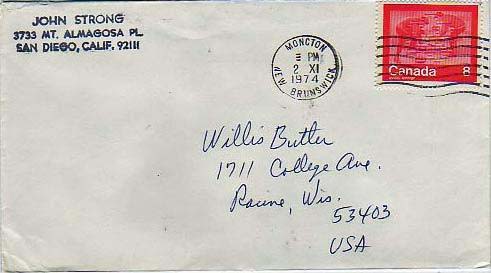 JOHN STRONG
3733 MT. ALMAGOSA PL.
SAN DIEGO, CALIF. 92111
MONCTON
PM
2 XI
1974
NEW BRUNSWICK
Canada 8
Willis Butler
1711 College Ave.
Racine, Wis.
53403
USA